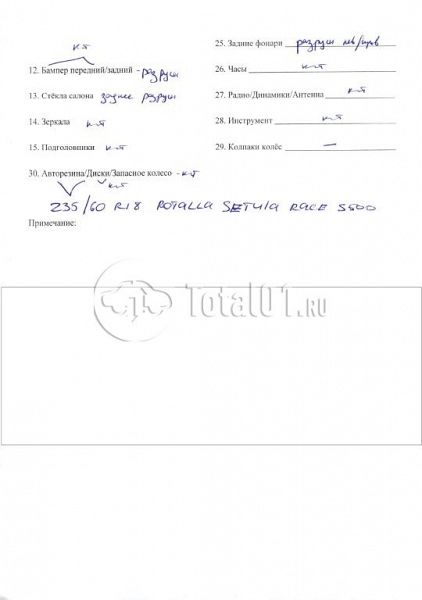 к-т
12. Бампер передний/задний - разруш
13. Стёкла салона заднее разруш
14. Зеркала к-т
15. Подголовники к-т
25. Задние фонари разруш лев/прав
26. Часы к-т
27. Радио/Динамики/Антенна к-т
28. Инструмент к-т
29. Колпаки колёс —
30. Авторезина/Диски/Запасное колесо - к-т
к-т
235/60 R18 ROTALLA SETULA RACE S500
Примечание:
Total01.RU